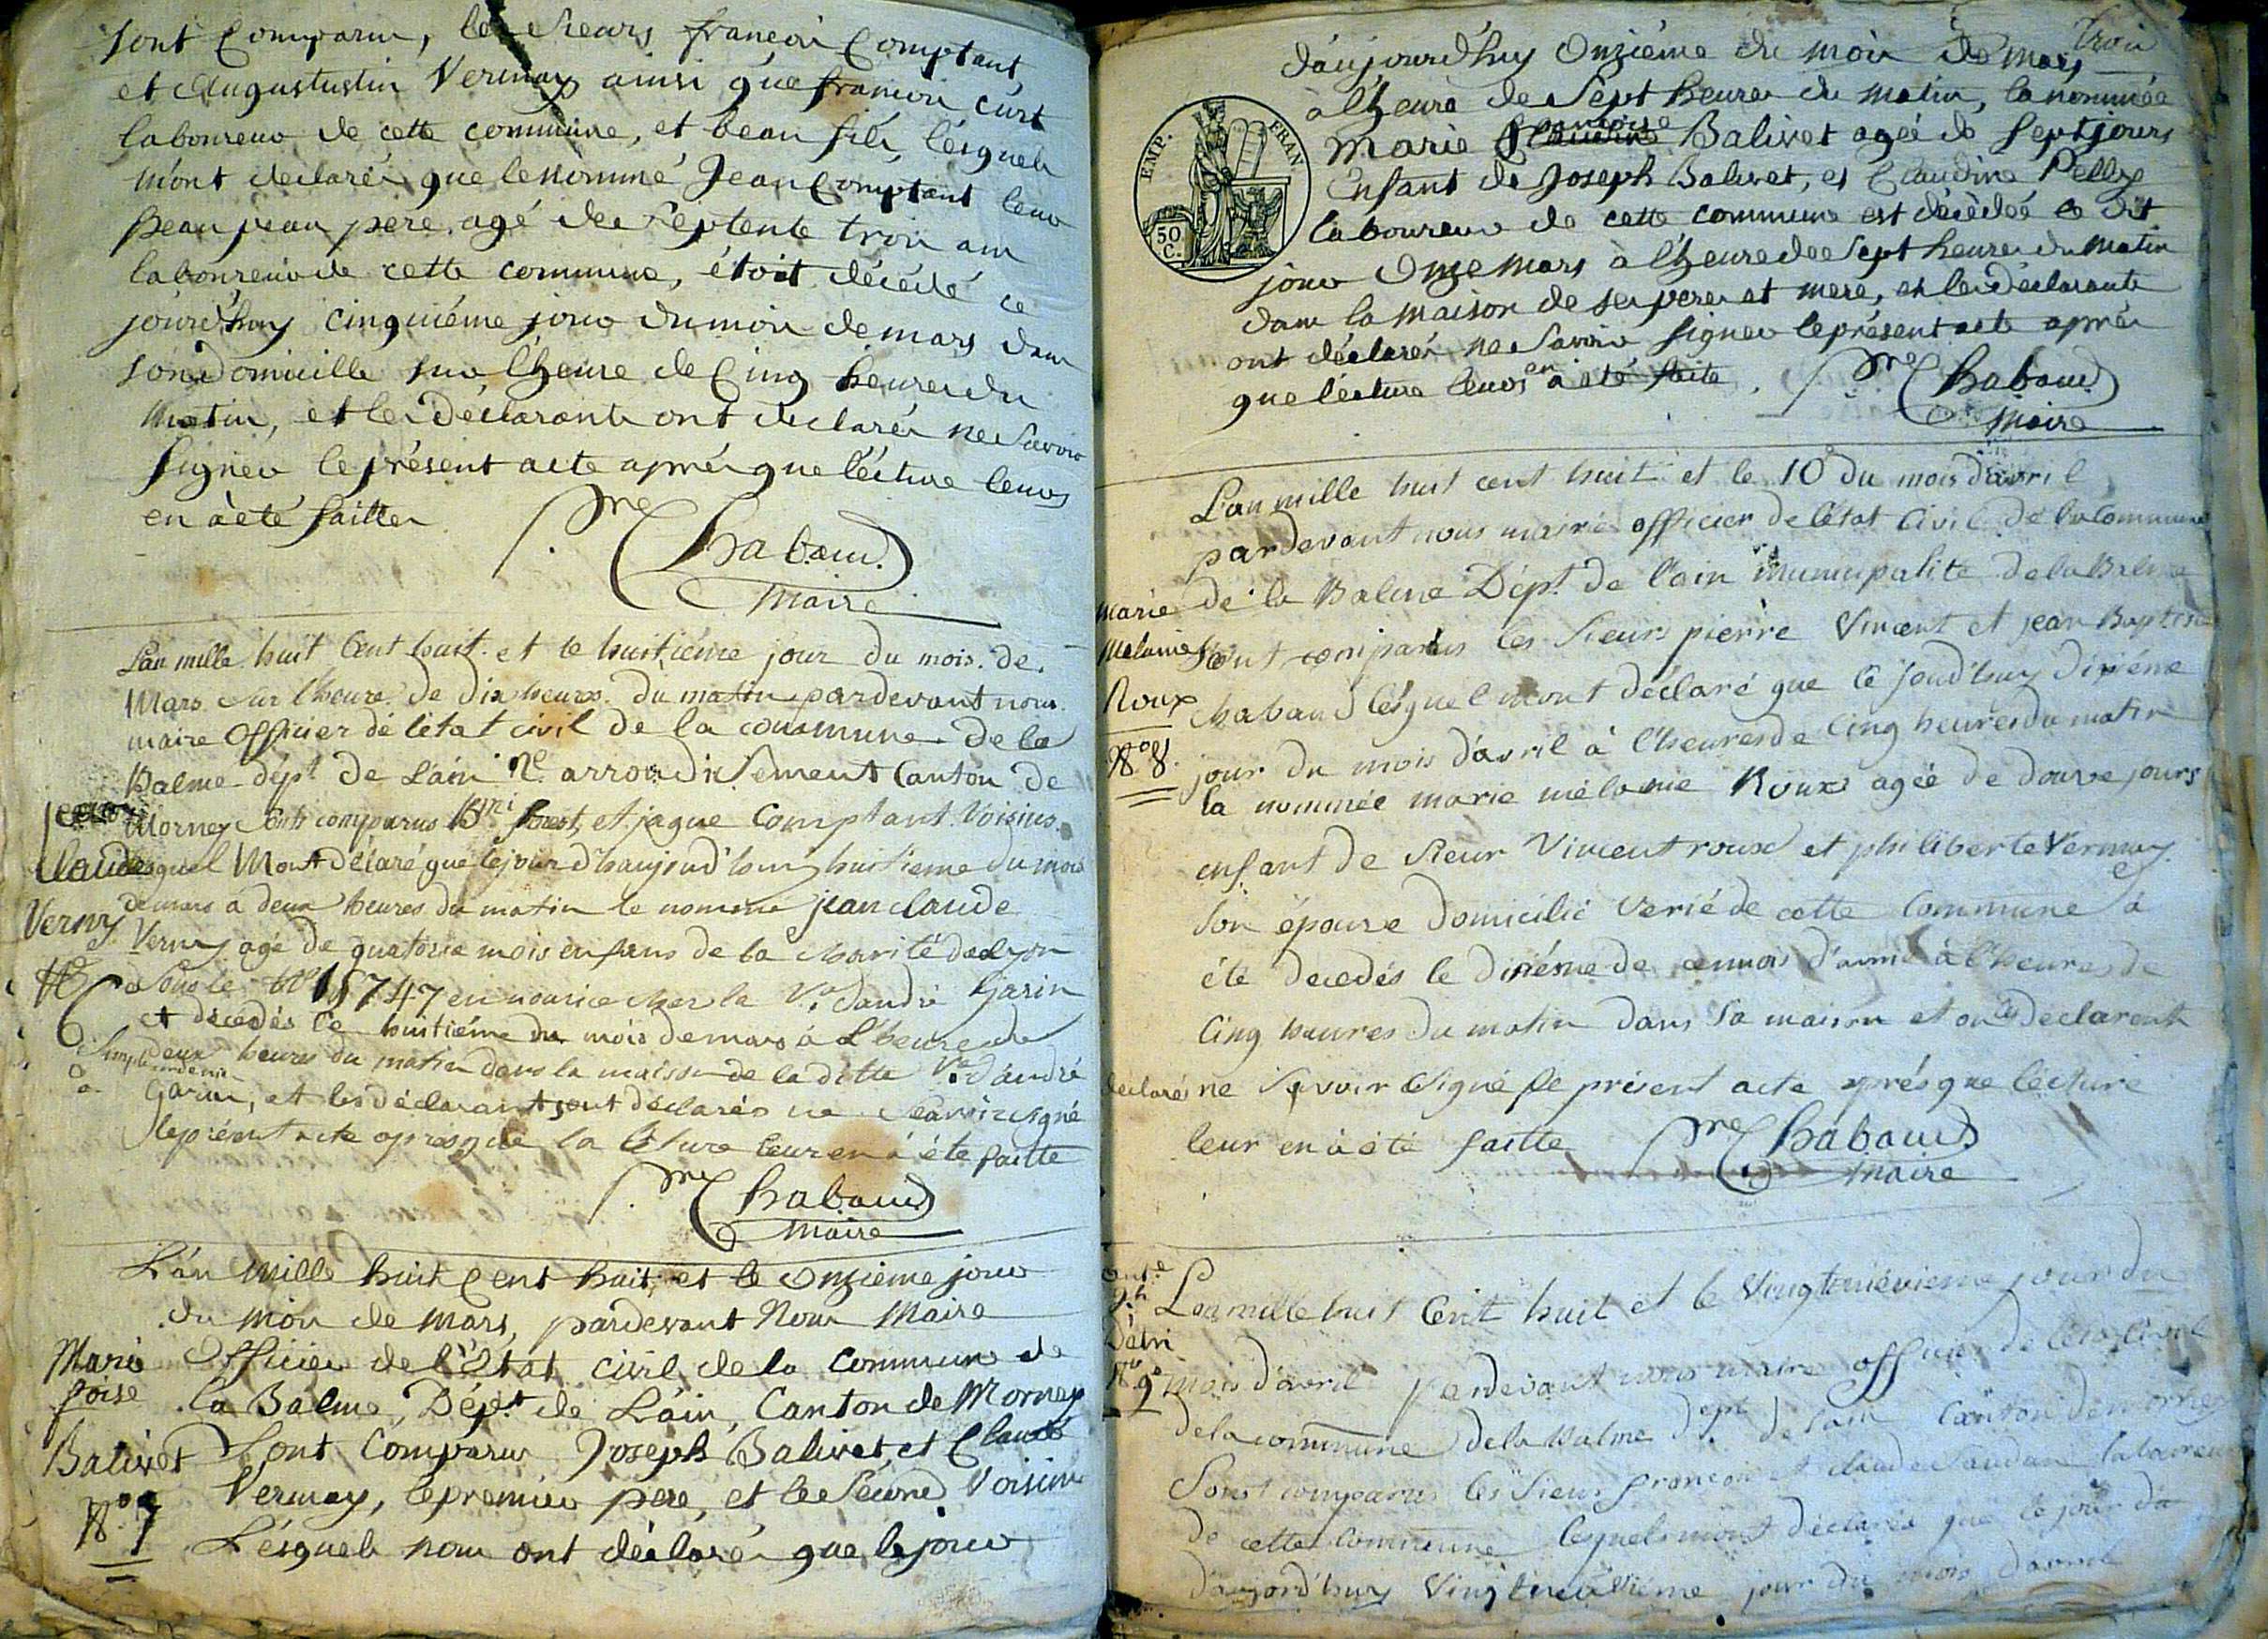 sont Comparu, les sieurs francoi Comptant
et Augustustin Vernay ainsi que francoi curt
laboureur de cette commune, et beau fils, lésquels
m'ont declarés que le nommé Jean Comptant leur
peau pere, agé de septente trois ans
laboureur de cette commune, étoit décédé ce
jourd'huy cinquiéme jour du mois de mars dans
son domicille sur l'heure de Cinq heures du
matin, et les déclarants ont declarés ne Savoir
signer le présent acte aprés que lécture leurs
en à eté faitte
Pre Chabaud
Maire
L'an mille huit Cent huit et le huitiéme jour du mois de
Mars sur l'heure de dix heures du matin pardevant nous
maire Officier dé létat civil de la commune de la
Balme dépt de L'ain Ne arrondissement Canton de
Mornay Sont comparus forest, et jaque Comptant Voisins
lesquel Mont déclaré que le jour d'haujourd'huy huitieme du mois
de mars a deux heures du matin le nommé jean claude
Verny agé de quatorze mois enfans de la charité de Lyon
Sous le No 15747 en nourice chez la Ve d'andré Garin
et décedés le huitiéme du mois de mars à L'heure de
deux heures du matin dans la maison de la ditte Ve d'andré
Garin, et les déclarant sont déclarés ne Savoir signé
le présent acte aprés que la lécture leur en à éte faitte
jean
Claude
Verny
No
6
Pre Chabaud
maire
L'an mille huit Cent huit, et le Onzième jour
du mois de mars, pardevant Nous Maire
Officier de l'état civil de la commune de
la Balme, Dépt de L'ain, Canton de Mornay
Sont Comparu Joseph Balivet, et Claude
Vernay, le premier pere, et le sécond Voisin
Lésquels nous ont déclarés que le jour
Marie
foise
Balivet
No 7
trois
d'aujourd'huy Onziéme du mois de Mars
à l'heure de Sept heures du matin, la nommée
Marie Balivet agée de sept jours
Enfant de Joseph Balivet, et Claudine Pelly
laboureur de cette commune est décèdée ce dit
jour Onze mars à l'heure de Sept heures du matin
dans la maison de ses pere et mere, et les déclarants
ont déclarés ne Savoir signer le présent acte aprés
que lécture leurs en à eté faite
Pre Chabaud
Maire
EMP. FRAN
50 C.
L'an mille huit cent huit et le 10 du mois d'avril
pardevant nous maire officier de létat Civil de la Commune
de la Balme Dépt de l'ain municipalite de la Balme
Sont comparus les sieurs pierre Vincent et jean Baptiste
Chabaud lésquel mont déclaré que le jourd'huy dixiéme
jour du mois d'avril à l'heures de Cinq heures du matin
la nommée marie mélanie Roux agée de douze jours
enfant de sieur Vincent roux et philiberte Vernay
son épouse domicilié de cette Commune à
été decedés le dixiéme de ce mois d'avril à l'heures de
Cinq heures du matin dans sa maison et ont les declarent
declaré ne Savoir Signé le présent acte aprés que lécture
leur en à été faitte
Marie
Melanie
Roux
No 8.
Pre Chabaud
Maire
L'an mille huit Cent huit et le Vingtneuvieme jour du
mois d'avril pardevant nous maire officier de léta Civil
de la commune de la Balme dept de l'ain Canton de mornay
Sont comparus les Sieur francoi et claude laboureur
de cette commune lesquels mont déclarés que le jour d'a
d'aujord'huy Vingtneuviéme jour du mois d'avril
No 9